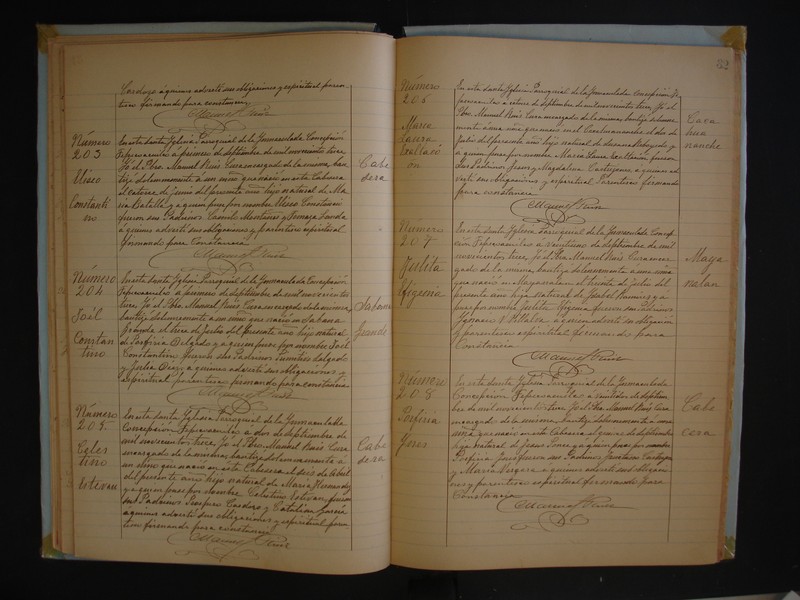 Cordoza a quienes advertí sus obligaciones y espiritual paren-
tesco firmando para constancia
Manuel Ruiz
Número
203
Eliseo
Constanti
no
En esta santa Iglesia Parroquial de la Inmaculada Concepción
a primero de septiembre de mil novecientos trece
Yo el Pbro. Manuel Ruiz Cura encargado de la misma, bau-
tizé solemnemente a un niño que nació en esta Cabecera
el catorce de junio del presente año hijo natural de Ma
ría Batalla y a quien puse por nombre Eliseo Constantino
fueron sus Padrinos Camilo Montañes y Tomaza
a quienes advertí sus obligaciones y parentesco espiritual
firmando para Constancia
Manuel Ruiz
Cabe
cera
Número
204
Joél
Constan
tino
En esta santa Iglesia Parroquial de la Inmaculada Concepción
a primero de septiembre de mil novecientos
trece, Yo el Pbro. Manuel Ruiz Cura encargado de la misma
bautizé solemnemente a un niño que nació en Sabana
Grande el trece de Julio del presente año hijo natural
de Porfiria Delgado y a quien puse por nombre Joél
Constantino fueron sus Padrinos Timoteo Delgado
y Julia Cruz, a quienes advertí sus obligaciones y
espiritual parentesco firmando para constancia
Manuel Ruiz
Sabana
Grande
Número
205
Celes
tino
Estévan
En esta santa Iglesia Parroquial de la Inmaculada
Concepción, a dos de septiembre de
mil novecientos trece, Yo el Pbro. Manuel Ruiz Cura
encargado de la misma, bautizé solemnemente a
un niño que nació en esta Cabecera el seis de Abril
del presente año hijo natural de María
y a quien puse por nombre Celestino Estévan, fueron
sus Padrinos y Catalina García
a quienes advertí sus obligaciones y espiritual paren
tesco firmando para constancia
Manuel Ruiz
Cabe
cera
82
Número
206
María
Laura
En esta santa Iglesia Parroquial de la Inmaculada Concepción
a catorce de septiembre de mil novecientos trece, Yo el
Pbro. Manuel Ruiz Cura encargado de la misma, bautizé solemne
mente a una niña que nació en Cacahuananche el dos de
Julio del presente año hija natural de Susana
a quien puse por nombre María Laura fueron
sus Padrinos y Magdalena a quienes ad
vertí sus obligaciones y espiritual Parentesco firmando
para constancia
Manuel Ruiz
Caca
hua
nanche
Número
207
Julita
Efigenia
En esta santa Iglesia Parroquial de la Inmaculada Concep
ción a veintiuno de septiembre de mil
novecientos trece, Yo el Pbro. Manuel Ruiz Cura encar
gado de la misma, bautizé solemnemente a una niña
que nació en Magazatan el treinta de Julio del
presente año hija Natural de Isabel Ramírez y a
quien puse por nombre Julita Efigenia fueron sus Padrinos
Ignacio y Otilia a quienes advertí sus obligacion
y parentesco espiritual firmando para
Constancia
Manuel Ruiz
Número
208
Porfiria
Inés
En esta santa Iglesia Parroquial de la Inmaculada
Concepción a veintidos de Septiem
bre de mil novecientos trece, Yo el Pbro. Manuel Ruiz Cura
encargado de la misma, bautizé solemnemente a una
niña que nació en esta Cabecera el quince de septiembre
hija natural de y a quien puse por nombre
Porfiria Inés fueron sus Padrinos
y María Vergara a quienes advertí sus obligacio
nes y parentesco espiritual firmando para
Constancia
Manuel Ruiz
Cabe
cera